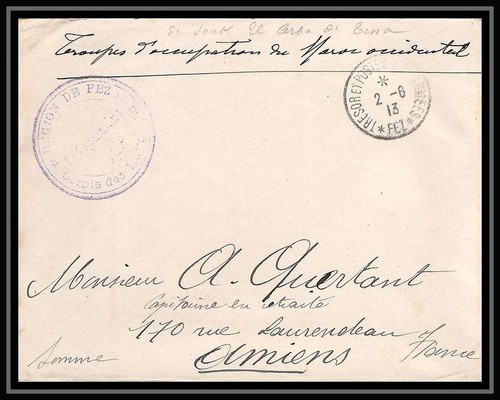 de Souk El Arba de Tissa
Troupes d'occupation du Maroc occidental
* RÉGION DE FEZ
Cercle des
TRESOR ET POSTES
*
2-6
13
* FEZ *
Monsieur A. Quertant
Capitaine en retraite
170 rue Laurendeau
Amiens
Somme
France